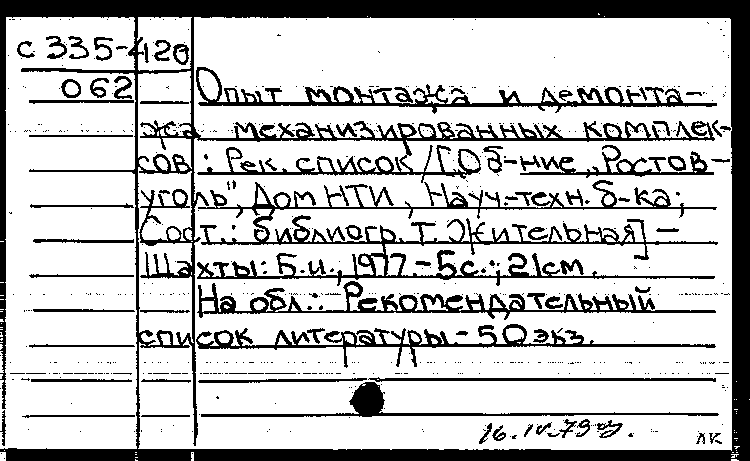 с 335-420
062
Опыт монтажа и демонта-
жа механизированных комплек-
сов : Рек. список /[Об-ние „Ростов-
уголь", Дом НТИ, Науч.-техн. б-ка;
Сост.: библиогр. Т. Жительная]. –
Шахты: Б.и., 1977. – 5 с.; 21 см.
На обл.: Рекомендательный
список литературы. – 50 экз.
16.IV.79
ЛК